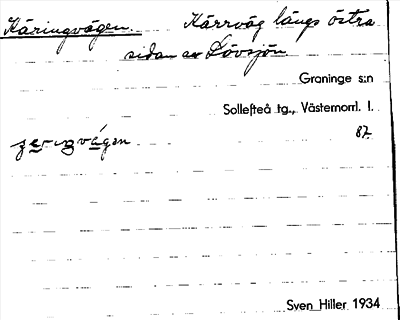 Käringvägen. Kärrväg längs östra
sidan av Lövsjön
Graninge s:n
Sollefteå tg., Västernorrl. l.
87.
Sven Hiller 1934